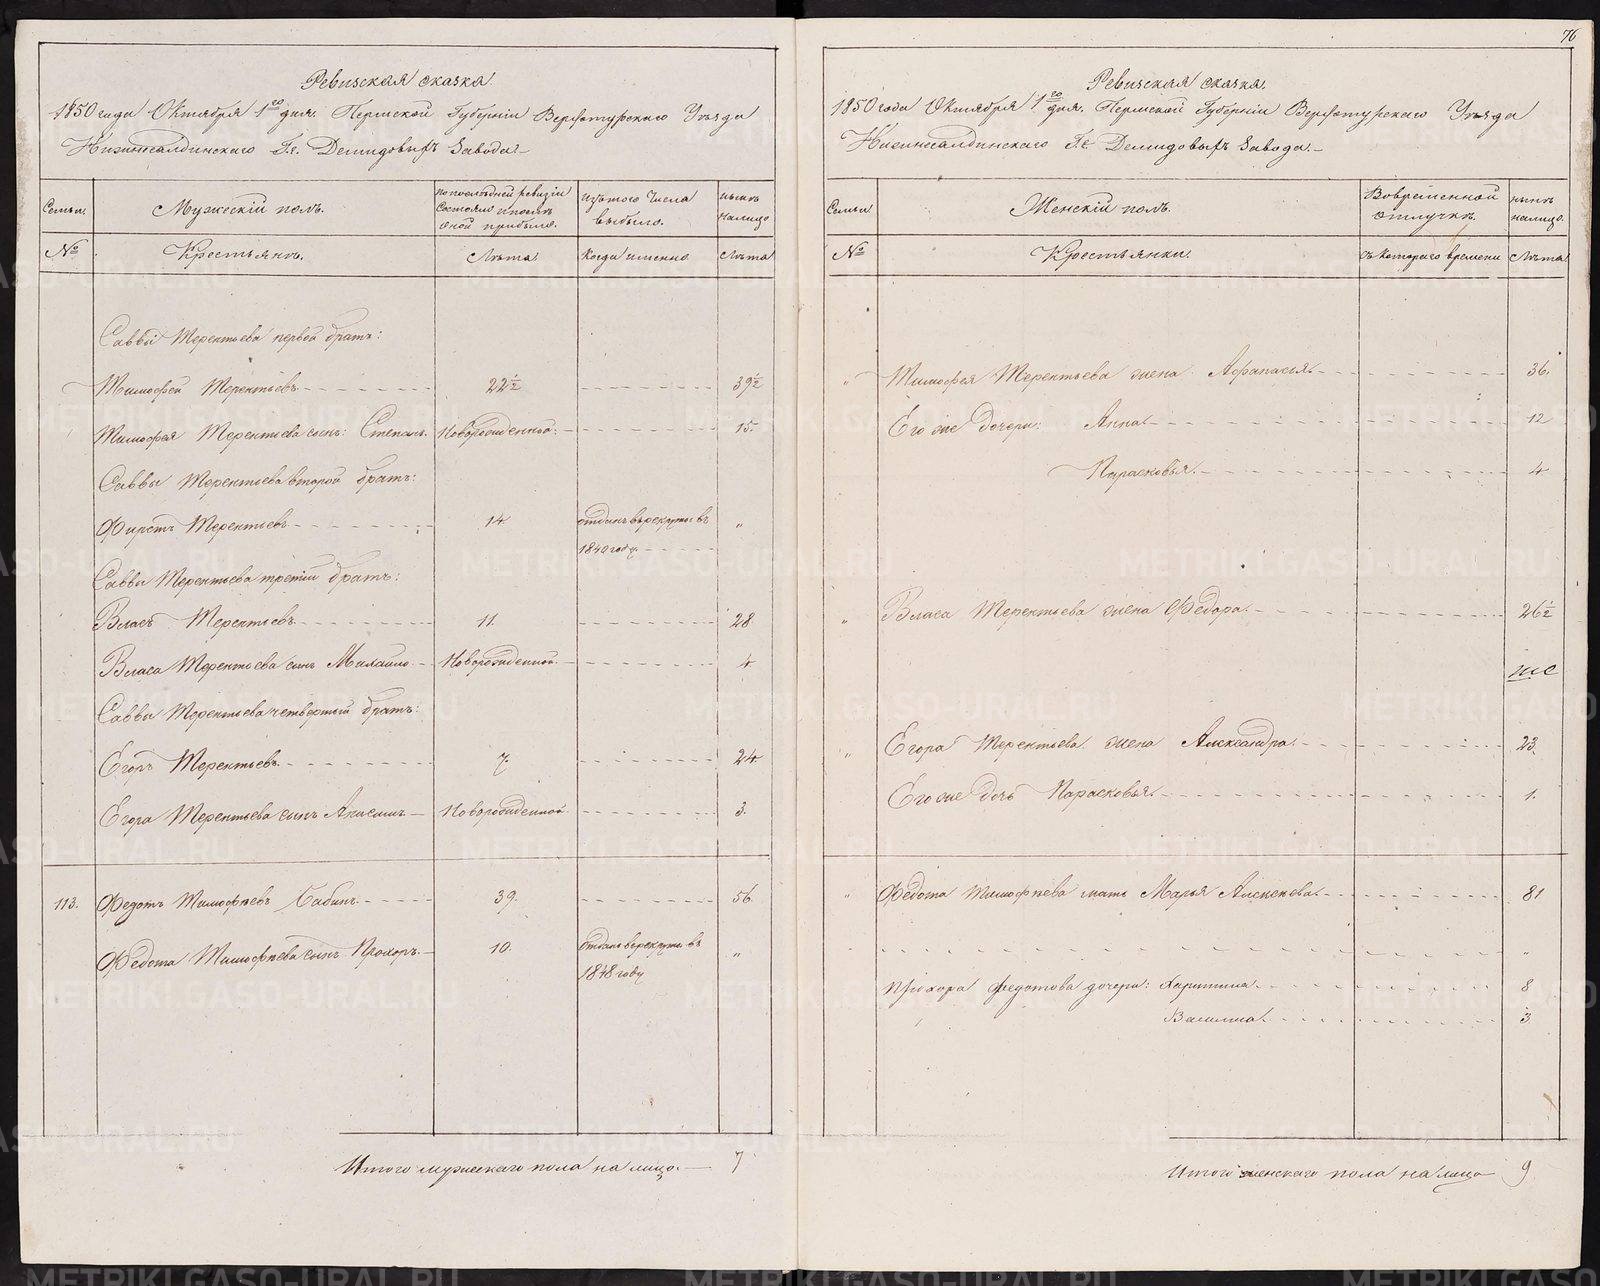 Ревизская сказка.
1850 года Октября 1го дня. Пермской Губерніи Верхотурскаго Уѣзда
Нижнесалдинскаго Г.г. Демидовыхъ Завода.
Семьи. Мужескій полъ. По послѣдней ревизіи состояло и послѣ оной прибыло. Изъ того числа выбыло. Нынѣ на лицо.
№ Крестьянъ. Лѣта. Когда именно. Лѣта
Саввы Терентьева первой братъ:
Тимофей Терентьевъ 22½ 39½
Тимофея Терентьева сынъ: Степанъ. Новорожденной. 15.
Саввы Терентьева второй братъ:
Фирстъ Терентьевъ 14 отданъ въ рекруты въ „
1840 году.
Саввы Терентьева третій братъ:
Власъ Терентьевъ 11. 28
Власа Терентьева сынъ Михайло Новорожденной 4
Саввы Терентьева четвертый братъ:
Егоръ Терентьевъ 7. 24
Егора Терентьева сынъ Анисимъ Новорожденной 3.
113. Федотъ Тимофѣевъ Бабинъ 39. 56.
Федота Тимофѣева сынъ Прохоръ. 10. отданъ в рекруты въ „
1848 году
Итого мужескаго пола на лицо. 7
76
Ревизская сказка.
1850 года Октября 1го дня. Пермской Губерніи Верхотурскаго Уѣзда
Нижнесалдинскаго Г.г. Демидовыхъ Завода.
Семьи. Женскій полъ. Во временной отлучкѣ. Нынѣ на лицо.
№ Крестьянки. Съ котораго времени Лѣта
„ Тимофея Терентьева жена Афанасья. 36.
Его же дочери: Анна. 12
Парасковья. 4
„ Власа Терентьева жена Федора. 26½
„ Егора Терентьева жена Александра. 23.
Его же дочь Парасковья. 1.
„ Федота Тимофѣева мать Марья Алексѣева. 81
„
Прохора Федотова дочери: Харитина 8
Василиса. 3
Итого женскаго пола на лицо 9
METRIKI.GASO-URAL.RU